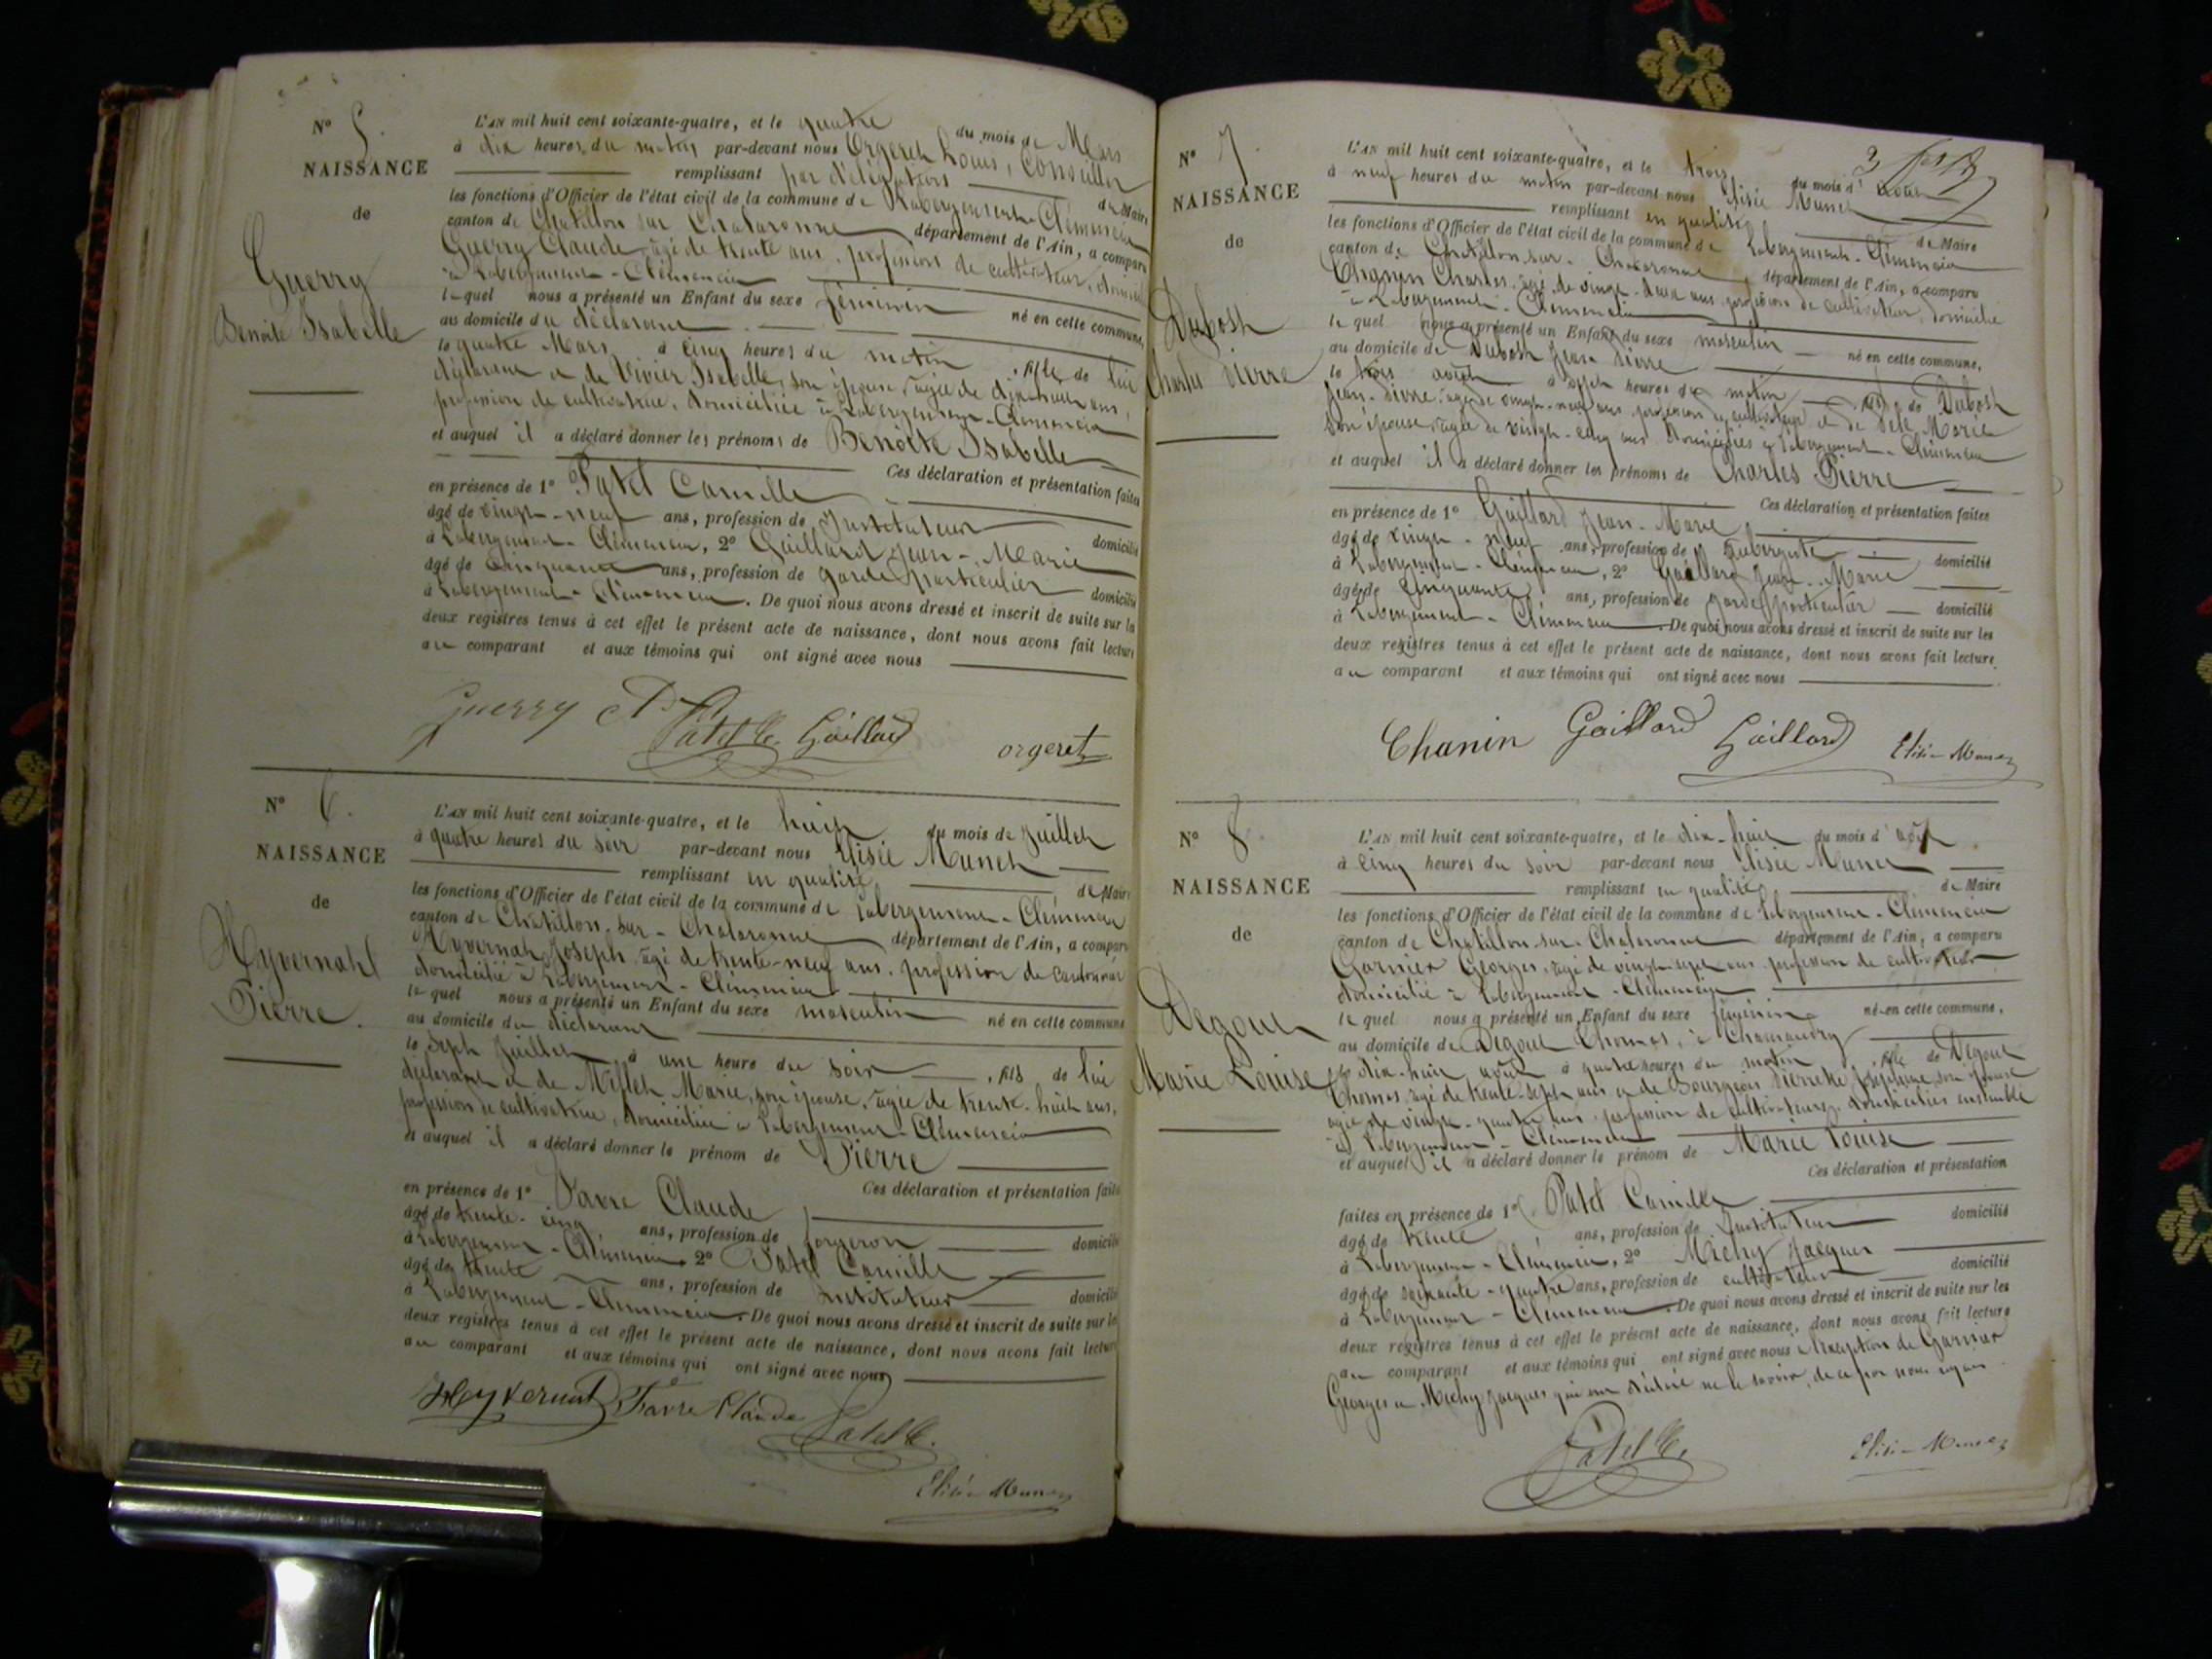 N° 5.
NAISSANCE
de
Guerry
Benoîte Isabelle
L'AN mil huit cent soixante-quatre, et le quatre du mois de Mars
à dix heures du matin par-devant nous Orgeret Louis, Conseiller
remplissant par délégation de Maire
les fonctions d'Officier de l'état civil de la commune de Labergement-Clémencia
canton de Chatillon sur Chalaronne département de l'Ain, a comparu
Guerry Claude, âgé de trente ans, profession de cultivateur, domicilié
à Labergement-Clémencia
lequel nous a présenté un Enfant du sexe féminin né en cette commune,
au domicile du déclarant
le quatre Mars à cinq heures du matin, fille de lui
déclarant et de Vivier Isabelle, son épouse, âgée de dix-huit ans,
profession de cultivatrice, domiciliée à Labergement-Clémencia
et auquel il a déclaré donner les prénoms de Benoîte Isabelle
Ces déclaration et présentation faites
en présence de 1° Patel Camille
âgé de vingt-neuf ans, profession de Instituteur domicilié
à Labergement-Clémencia, 2° Gaillard Jean-Marie
âgé de Cinquante ans, profession de garde particulier domicilié
à Labergement-Clémencia. De quoi nous avons dressé et inscrit de suite sur les
deux registres tenus à cet effet le présent acte de naissance, dont nous avons fait lecture
au comparant et aux témoins qui ont signé avec nous
Guerry Patel C. Gaillard orgeret
N° 6.
NAISSANCE
de
Hyvernat
Pierre.
L'AN mil huit cent soixante-quatre, et le huit du mois de Juillet
à quatre heures du soir par-devant nous Elisée Munet
remplissant en qualité de Maire
les fonctions d'Officier de l'état civil de la commune de Labergement-Clémencia
canton de Chatillon-sur-Chalaronne département de l'Ain, a comparu
Hyvernat Joseph, âgé de trente-neuf ans, profession de cantonnier
domicilié à Labergement-Clémencia
lequel nous a présenté un Enfant du sexe masculin né en cette commune
au domicile du déclarant
le sept Juillet à une heure du soir, fils de lui
déclarant et de Millet Marie, son épouse, âgée de trente-huit ans,
profession de cultivatrice, domiciliée à Labergement-Clémencia
et auquel il a déclaré donner le prénom de Pierre
Ces déclaration et présentation faites
en présence de 1° Favre Claude
âgé de trente-cinq ans, profession de forgeron domicilié
à Labergement-Clémencia, 2° Patel Camille
âgé de trente ans, profession de Instituteur domicilié
à Labergement-Clémencia. De quoi nous avons dressé et inscrit de suite sur les
deux registres tenus à cet effet le présent acte de naissance, dont nous avons fait lecture
au comparant et aux témoins qui ont signé avec nous
Hyvernat Favre Claude Patel C.
Elisée Munet
N° 7.
NAISSANCE
de
Dubost
Charles Pierre
L'AN mil huit cent soixante-quatre, et le trois du mois d'août
à neuf heures du matin par-devant nous Elisée Munet
remplissant en qualité de Maire
les fonctions d'Officier de l'état civil de la commune de Labergement-Clémencia
canton de Chatillon-sur-Chalaronne département de l'Ain, a comparu
Chanin Charles, âgé de vingt-deux ans, profession de cultivateur, domicilié
à Labergement-Clémencia
lequel nous a présenté un Enfant du sexe masculin né en cette commune,
au domicile de Dubost Jean Pierre
le trois août à sept heures du matin, fils de Dubost
Jean-Pierre, âgé de vingt-neuf ans, profession de cultivateur et de Marie
son épouse, âgée de vingt-cinq ans domiciliés à Labergement-Clémencia
et auquel il a déclaré donner les prénoms de Charles Pierre
Ces déclaration et présentation faites
en présence de 1° Gaillard Jean-Marie
âgé de vingt-neuf ans, profession de aubergiste domicilié
à Labergement-Clémencia, 2° Gaillard Jean-Marie
âgé de Cinquante ans, profession de garde particulier domicilié
à Labergement-Clémencia. De quoi nous avons dressé et inscrit de suite sur les
deux registres tenus à cet effet le présent acte de naissance, dont nous avons fait lecture
au comparant et aux témoins qui ont signé avec nous
Chanin Gaillard Gaillard Elisée Munet
N° 8.
NAISSANCE
de
Degout
Marie Louise
L'AN mil huit cent soixante-quatre, et le dix-huit du mois d'août
à cinq heures du soir par-devant nous Elisée Munet
remplissant en qualité de Maire
les fonctions d'Officier de l'état civil de la commune de Labergement-Clémencia
canton de Chatillon-sur-Chalaronne département de l'Ain, a comparu
Garnier Georges, âgé de vingt-sept ans profession de cultivateur
domicilié à Labergement-Clémencia
lequel nous a présenté un Enfant du sexe féminin né en cette commune,
au domicile de Degout Thomas, à
le dix-huit août à quatre heures du matin, fille de Degout
Thomas, âgé de trente-sept ans et de Bourgeois Pierrette Joséphine, son épouse
âgée de vingt-quatre ans, profession de cultivateurs, domiciliés ensemble
à Labergement-Clémencia
et auquel il a déclaré donner le prénom de Marie Louise
Ces déclaration et présentation
faites en présence de 1° Patel Camille
âgé de trente ans, profession de Instituteur domicilié
à Labergement-Clémencia, 2° Michy Jacques
âgé de soixante-quatre ans, profession de cultivateur domicilié
à Labergement-Clémencia. De quoi nous avons dressé et inscrit de suite sur les
deux registres tenus à cet effet le présent acte de naissance, dont nous avons fait lecture
au comparant et aux témoins qui ont signé avec nous à l'exception de Garnier
Georges et Michy Jacques qui ont déclaré ne le savoir, de ce par nous requis.
Patel C. Elisée Munet